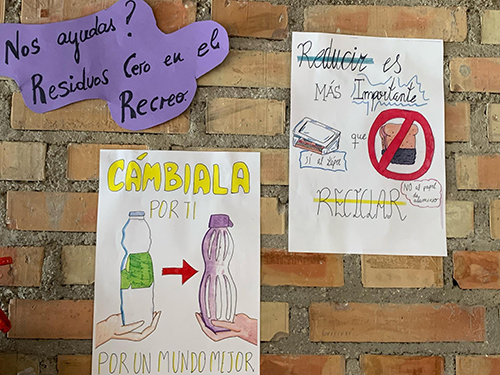 Nos ayudas?
Residuos Cero en el
Recreo.
CÁMBIALA
POR TI
POR UN MUNDO MEJOR
Reducir es
MÁS Importante
que
SÍ el táper
NO al papel
de
aluminio
RECICLAR